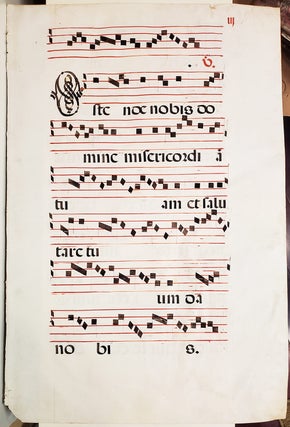 iij
6.
Oste nde nobis do
mine misericordi ā
tu am et salu
tare tu
um da
no bi s.